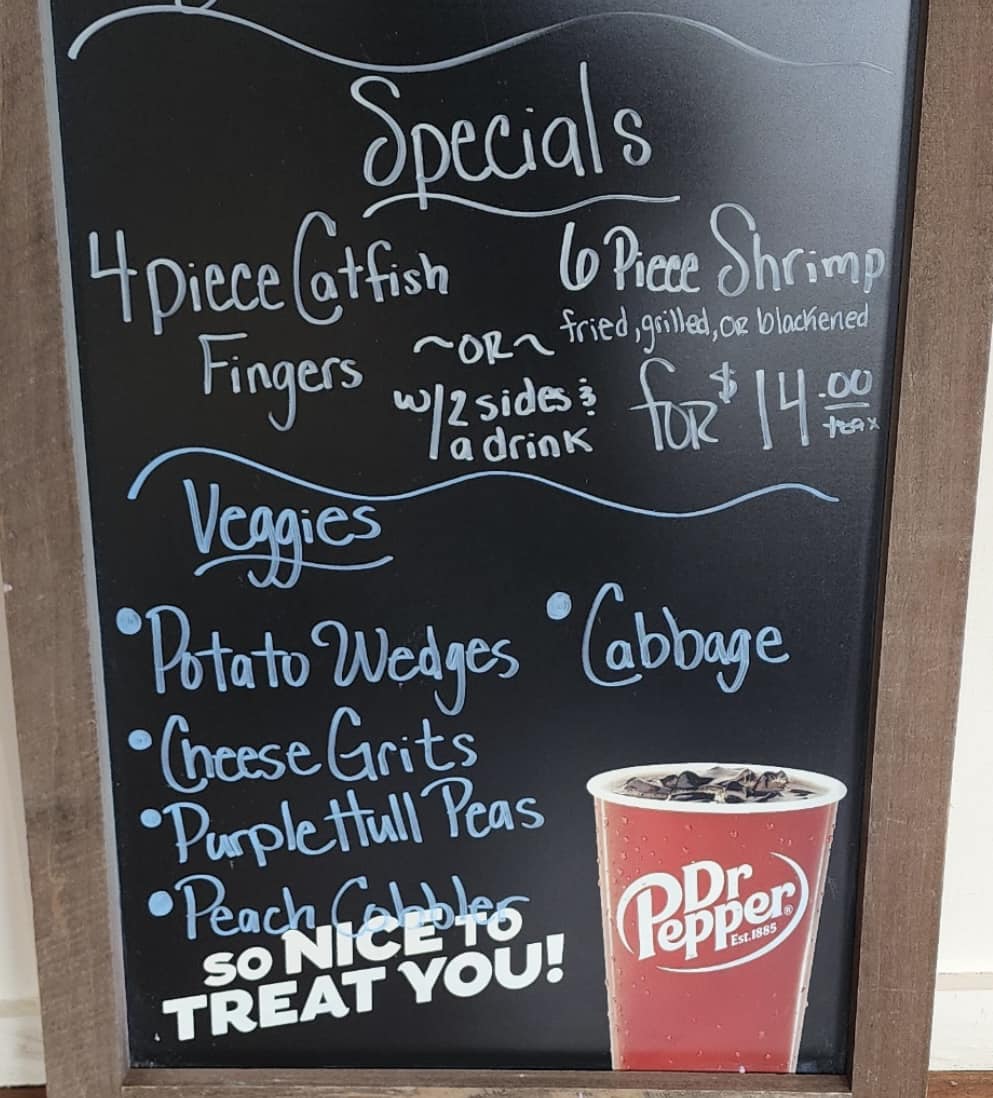 Specials
4 piece Catfish
Fingers
~OR~
6 Piece Shrimp
fried, grilled, OR blackened
w/2 sides &
a drink
for $14.00
tax
Veggies
•Potato Wedges
•Cabbage
•Cheese Grits
•Purple Hull Peas
•Peach Cobbler
SO NICE TO
TREAT YOU!
Dr
Pepper®
Est.1885